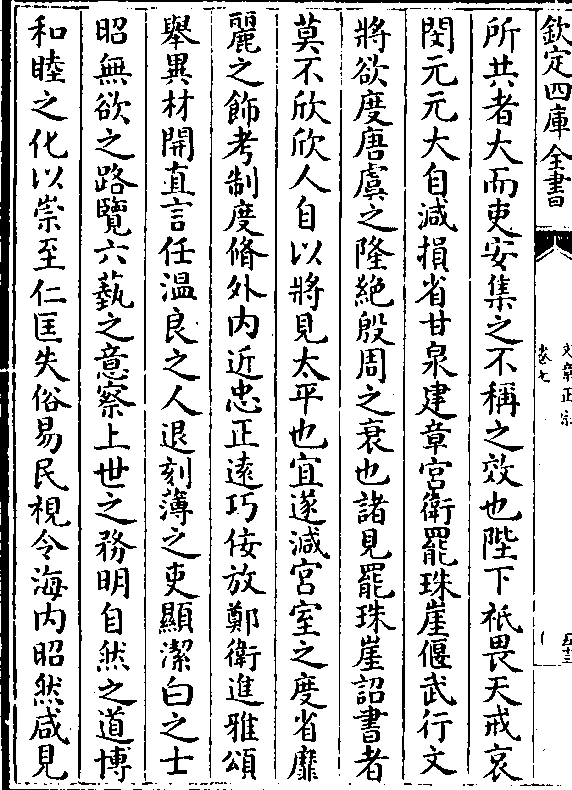 欽定四庫全書
所共者大而吏安集之不稱之效也陛下祇畏天戒哀
閔元元大自減損省甘泉建章宮衛罷珠崖偃武行文
將欲度唐虞之隆絶殷周之衰也諸見罷珠崖詔書者
莫不欣欣人自以將見太平也宜遂減宮室之度省靡
麗之飾考制度脩外内近忠正逺巧佞放鄭衛進雅頌
舉異材開直言任温良之人退刻薄之吏顯潔白之士
昭無欲之路覽六藝之意察上世之務明自然之道博
和睦之化以崇至仁匡失俗易民視令海内昭然咸見
文章正宗
卷七